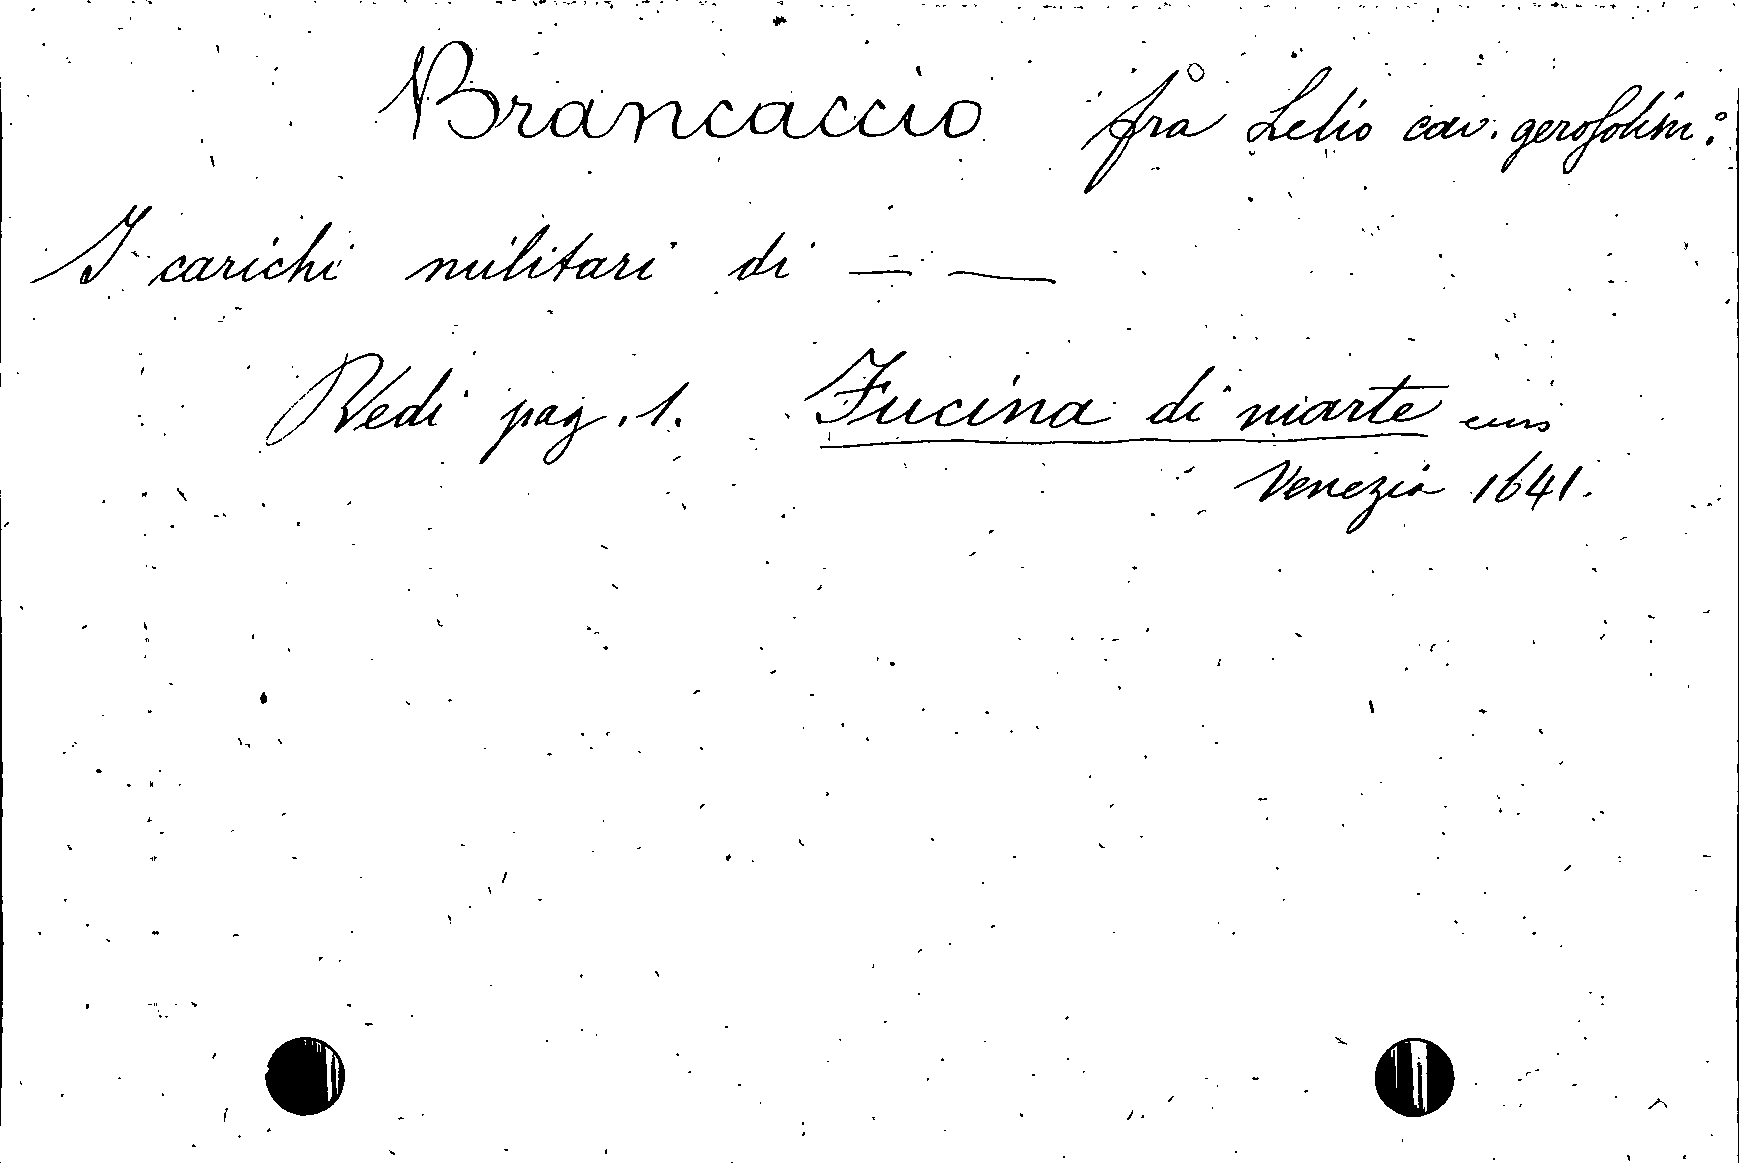 Brancaccio frå Lelio cav. gerosolim:°
I carichi militari di — —
Vedi pag. 1. Fucina di marte
Venezia 1641.